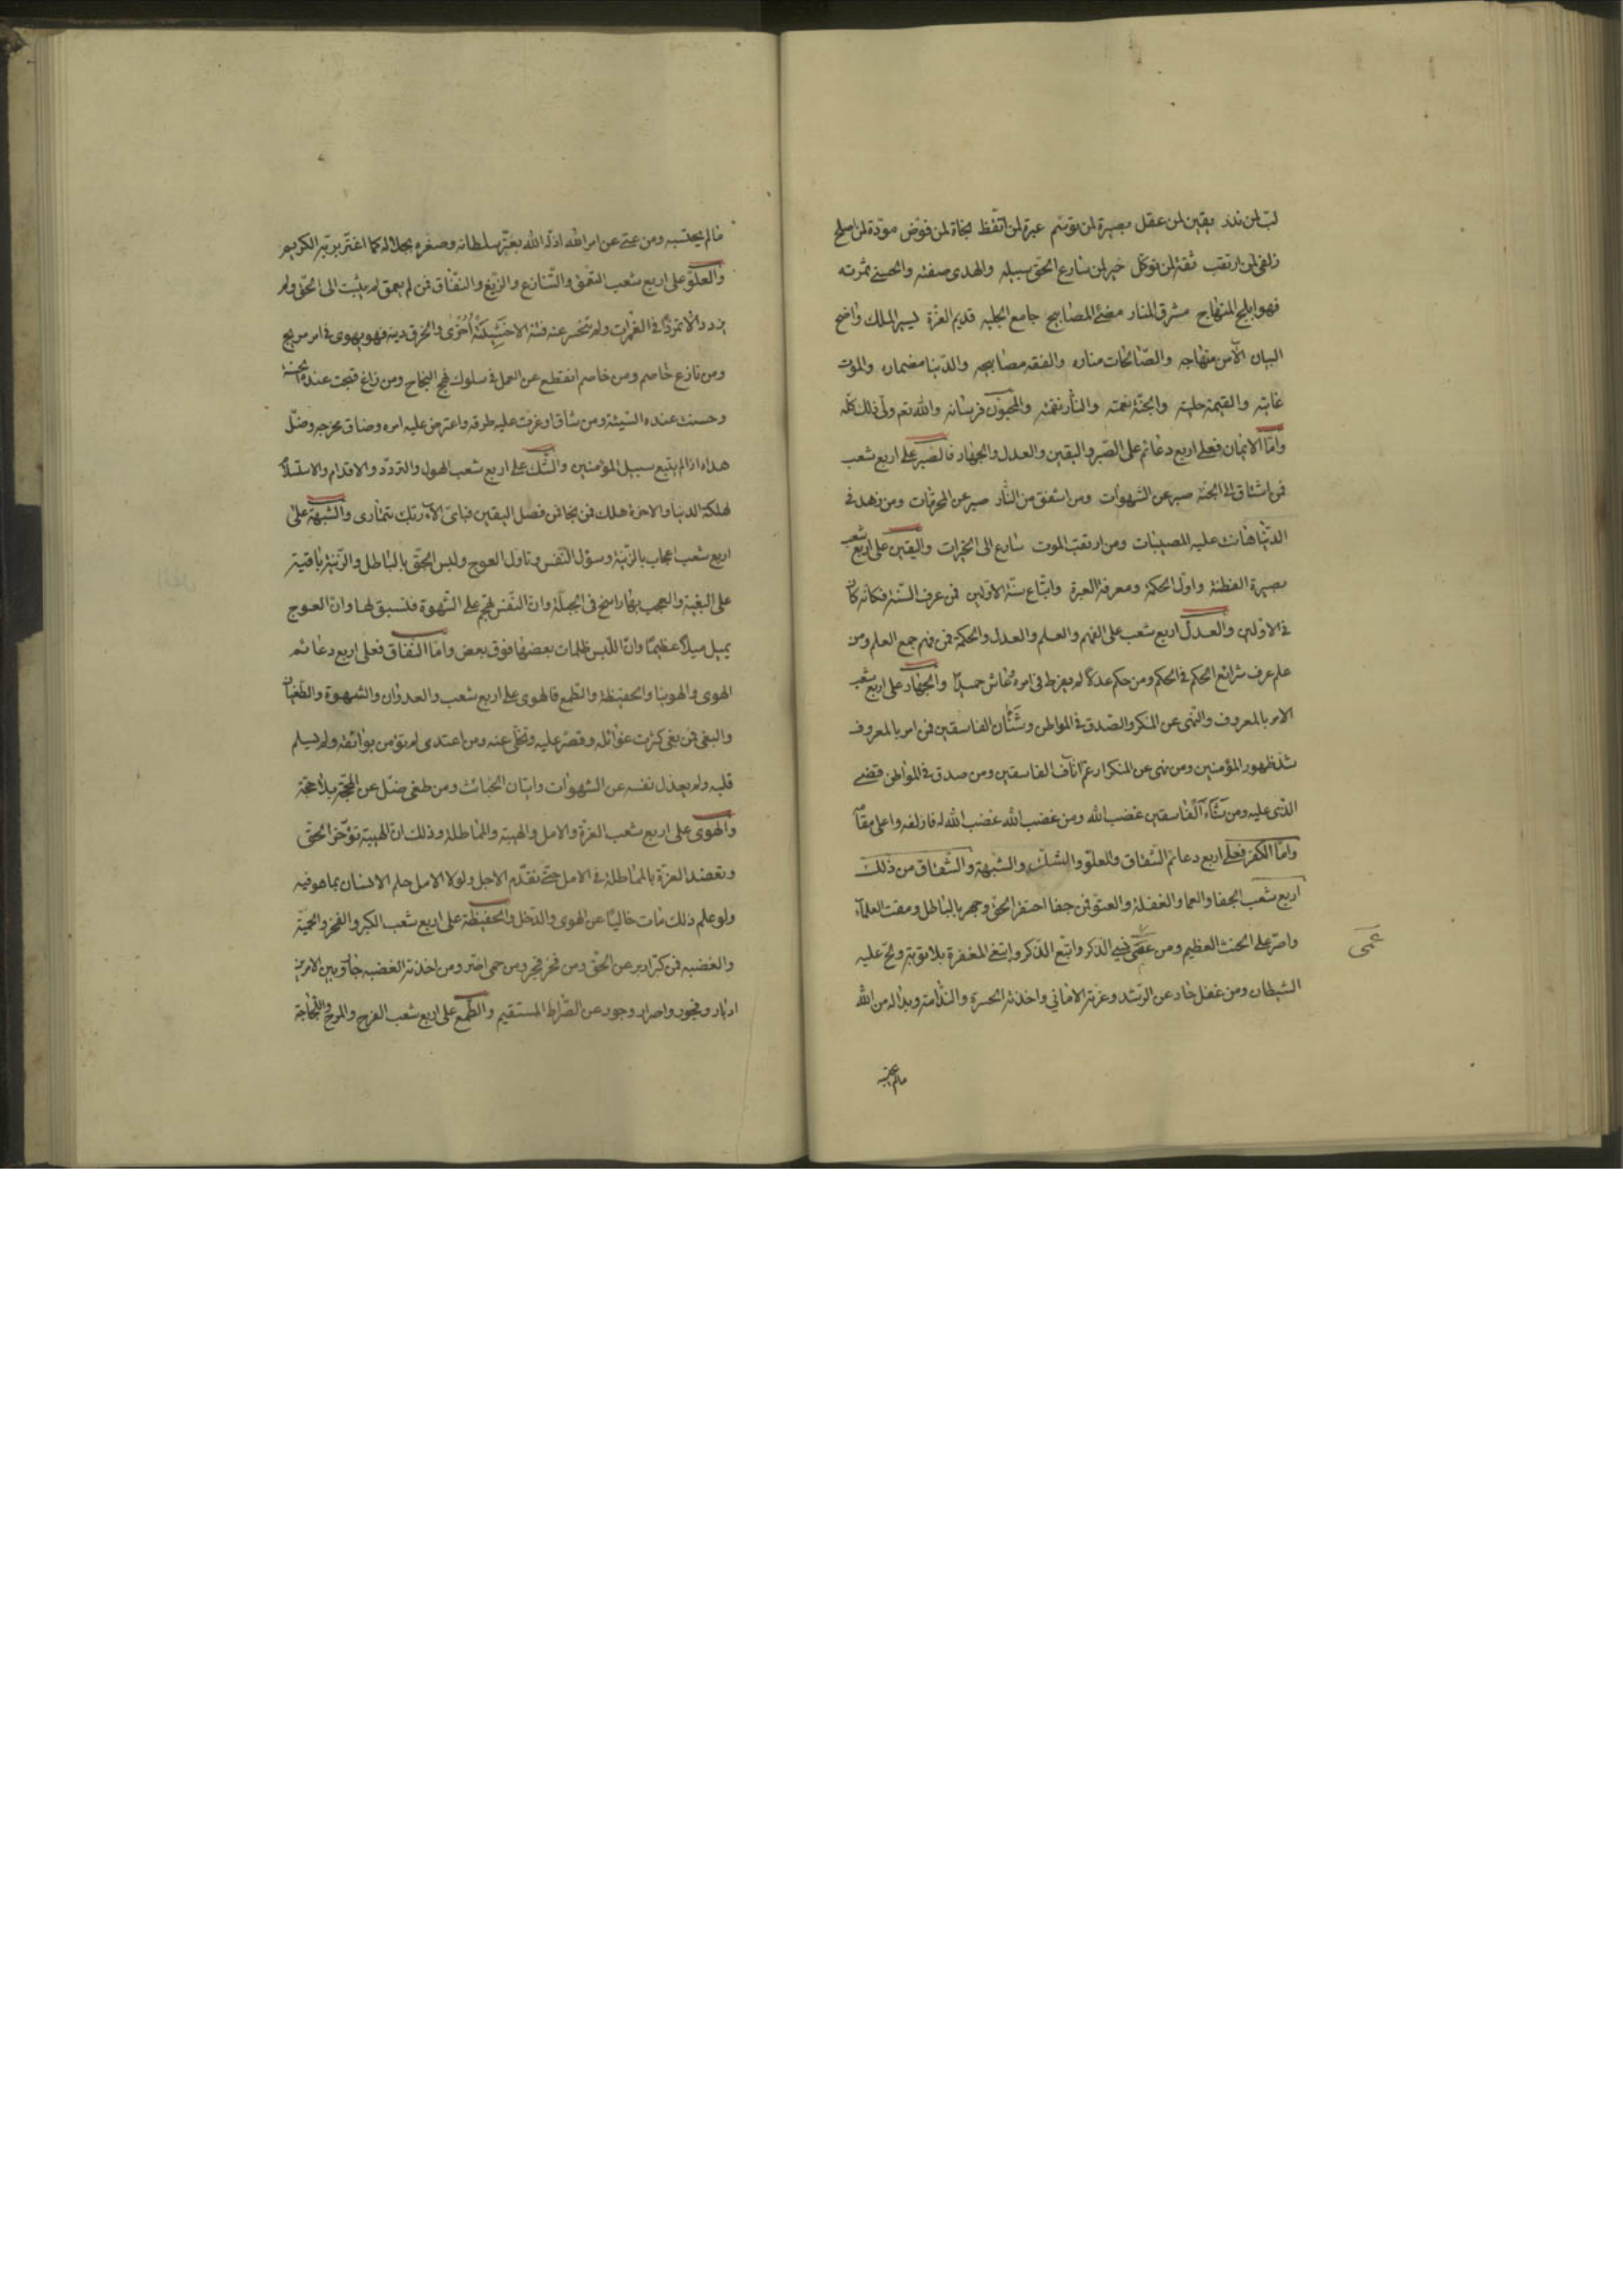 لب لمن تدبر يقين لمن عقل بصيرة لمن توسّم عبرة لمن اتّعظ نجاة لمن فوّض مودّة لمن اصلح
زلفى لمن ارتقب ثقة لمن توكّل خير لمن سارع الحقّ سبيله والهدى صفته والحسنى ثمرته
فهو ابلج المنهاج مشرق المنار مضئ المصابيح جامع الحلبه قديم العزّة يسير المسلك واضح
البيان الآمن منهاجه والصّالحات مناره والفقه مصابيحه والدّنيا مضماره والموت
غايته والقيمة حلبته والجنّة نعمته والنّار نقمته والمحبّون فرسانه والله تعم ولى ذلك كلّه
وامّا الايمان فعلى اربع دعائم على الصّبر واليقين والعدل والجهاد فالصبر على اربع شعب
فمن اشتاق الى الجنّة صبر عن الشهوات ومن اشفق من النّار صبر عن المحرمات ومن زهد فى
الدّنيا هانت عليه المصيبات ومن ارتقب الموت سارع الى الخيرات واليقين على اربع شعب
بصيرة الفطنة واول الحكمة ومعرفة العبرة واتّباع سنّة الاوّلين فمن عرف السّنة فكانّه كان
فى الاوّلين والعدل اربع شعب على الفهم والعلم والعدل والحكمة فمن فهم جمع العلم ومن
علم عرف شرائع الحكم فى الحكم ومن حكم عدلا لم يفرط فى امره وعاش حميدا والجهاد على اربع شعب
الامر بالمعروف والنّهى عن المنكر والصّدق فى المواطن وشنآن الفاسقين فمن امر بالمعروف
شدّ ظهور المؤمنين ومن نهى عن المنكر ارغم آناف الفاسقين ومن صدق فى المواطن قضى
الذى عليه ومن شنآء الفاسقين غضب لله ومن غضب لله غضب الله له فازلفه واعلى مقامه
وامّا الكفر فعلى اربع دعائم الشّقاق والعلوّ والشكّ والشبهة والشّقاق من ذلك
اربع شعب الجفا والعما والغفلة والعتوّ فمن جفا احتقر الحقّ وجهر بالباطل ومقت العلمآء
واصرّ على الحنث العظيم ومن عصى نسى الذكر واتبع الذّكر وابتغى المغفرة بلا توبة ولحّ عليه
عمى
الشيطان ومن غفل حاد عن الرّشد وغرّته الامانى واخذته الحسرة والنّدامة وبدا له من الله
مالم يحتسبه
مالم يحتسبه ومن عتى عن امر الله اذلّه الله بعزّ سلطانه وصغره بجلاله كما اغترّ بربّه الكريم
والعلوّ على اربع شعب التعمق والتّنازع والزّيغ والشّقاق فمن لم يعمق لم يثبت الى الحقّ ولم
يزدد الّا تمرّدا فى الغمرات ولم تنحسر عنه فتنة الا غشيته اخرى وانخرق دينه فهو يهوى فى امر مريج
ومن نازع خاصم ومن خاصم انقطع عن العمل فى سلوك فج النجاح ومن زاغ قبحت عنده الحسنة
وحسنت عنده السّيئة ومن شاقا وعرت عليه طرقه واعترض عليه امره وضاق مخرجه وضلّ
هداه اذا لم يتبع سبيل المؤمنين والشّك على اربع شعب الهول والتردّد والاقدام والاستسلام
لهلكة الدنيا والاخرة هلك فمن نجا فمن فضل اليقين فباىّ الآء ربّك تتمارى والشبهة على
اربع شعب اعجاب بالزّينة وسؤل النّفس وتاوّل العوج ولبس الحقّ بالباطل والزّينة باقية
على البغية والعجب بها راسخ فى الجبلّة وانّ النّفس تهجم على الشّهوة فتسبق لها وانّ العوج
يميل ميلا عظيما وانّ اللّبس ظلمات بعضها فوق بعض وامّا النّفاق فعلى اربع دعائم
الهوى والهوينا والحفيظة والطّمع فالهوى على اربع شعب والعدوان والشهوة والطّغيان
والبغى فمن بغى كثرت غوائله وقصر عليه وتخلّى عنه ومن اعتدى لم تؤمن بوائقه ولم يسلم
قلبه ولم يعذل نفسه عن الشهوات واتيان الخبائث ومن طغى ضلّ عن المحجّة بلا حجّة
والهوى على اربع شعب الغرّة والامل والهيبة والمماطلة وذلك انّ الهيبة تؤخّر الحقّ
وتعضد الغرّة بالمماطلة فى الامل حتّى تقدّم الاجل ولولا الامل علم الانسان بما هو فيه
ولو علم ذلك مات خاليا عن الهوى والدّخل والحفيظة على اربع شعب الكبر والفخر والحميّة
والغضبه فمن كبّر ادبر عن الحقّ ومن فخر فجر ومن حمى اصّر ومن اخذته الغضبه جار وبين الامرين
ادبار وفجور واصرار وجور عن الصّراط المستقيم والطّمع على اربع شعب الفرح والمرح واللّجاجة